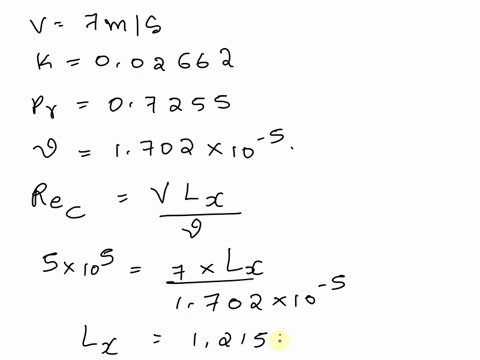 V = 7m/s
K = 0.02662
Pr = 0.7255
ϑ = 1.702 × 10⁻⁵.
Re_C = V Lx / ϑ
5 × 10⁵ = 7 × Lx / 1.702 × 10⁻⁵
Lx = 1.215